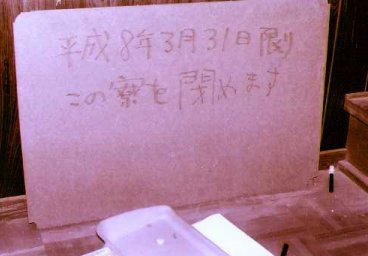 平成8年3月31日限り
この寮を閉めます